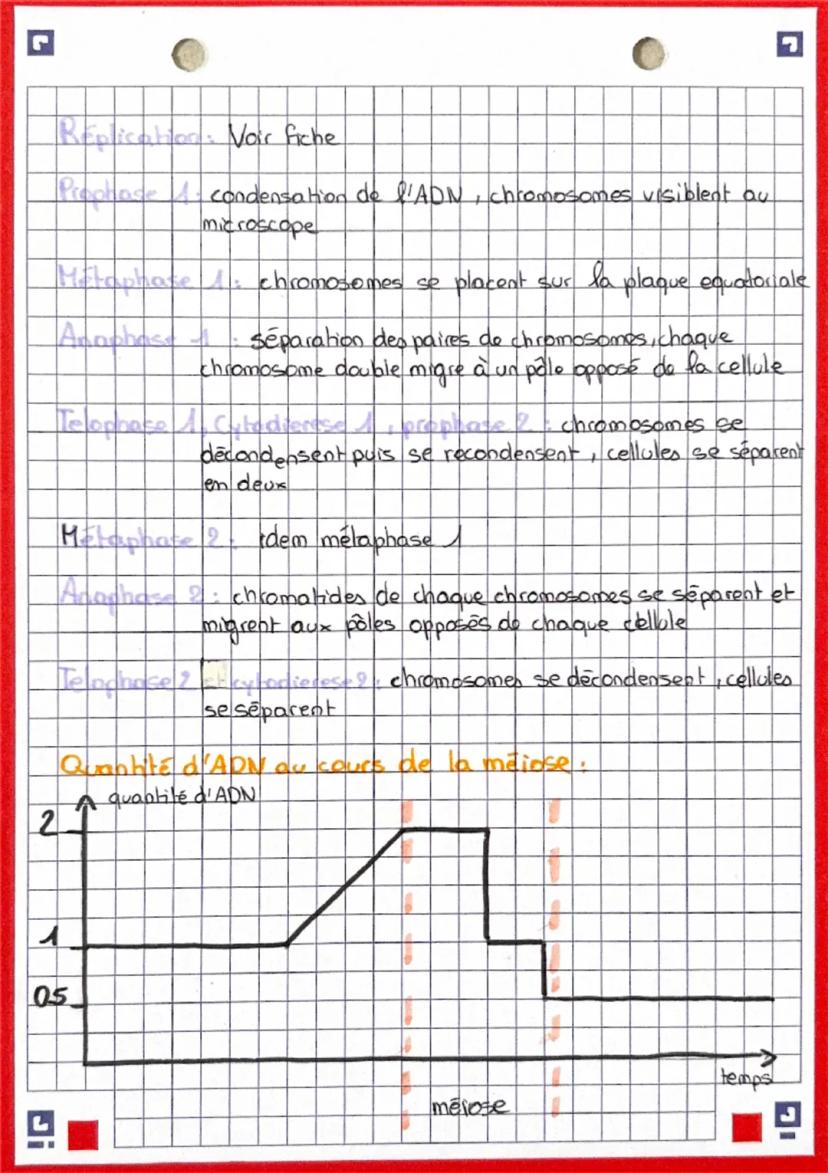 Réplication: Voir fiche
Prophase 1: condensation de l'ADN, chromosomes visiblent au
microscope
Métaphase 1: chromosomes se placent sur la plaque equatoriale
Anaphase 1: séparation des paires de chromosomes, chaque
chromosome double migre à un pôle opposé de la cellule
Telophase 1, Cytodierese 1, prophase 2: chromosomes se
décondensent puis se recondensent, cellules se séparent
en deux
Métaphase 2: idem métaphase 1
Anaphase 2: chromatides de chaque chromosomes se séparent et
migrent aux pôles opposés de chaque cellule
Telophase 2 et cytodierese 2: chromosomes se décondensent, cellules
se séparent
Quantité d'ADN au cours de la méiose:
quantité d'ADN
2
1
0.5
temps
méiose